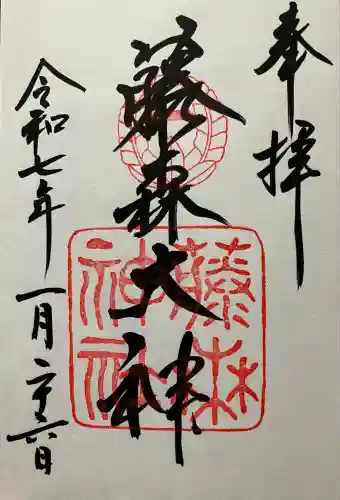 奉拝
藤森大神
藤森神社
令和七年一月二十六日